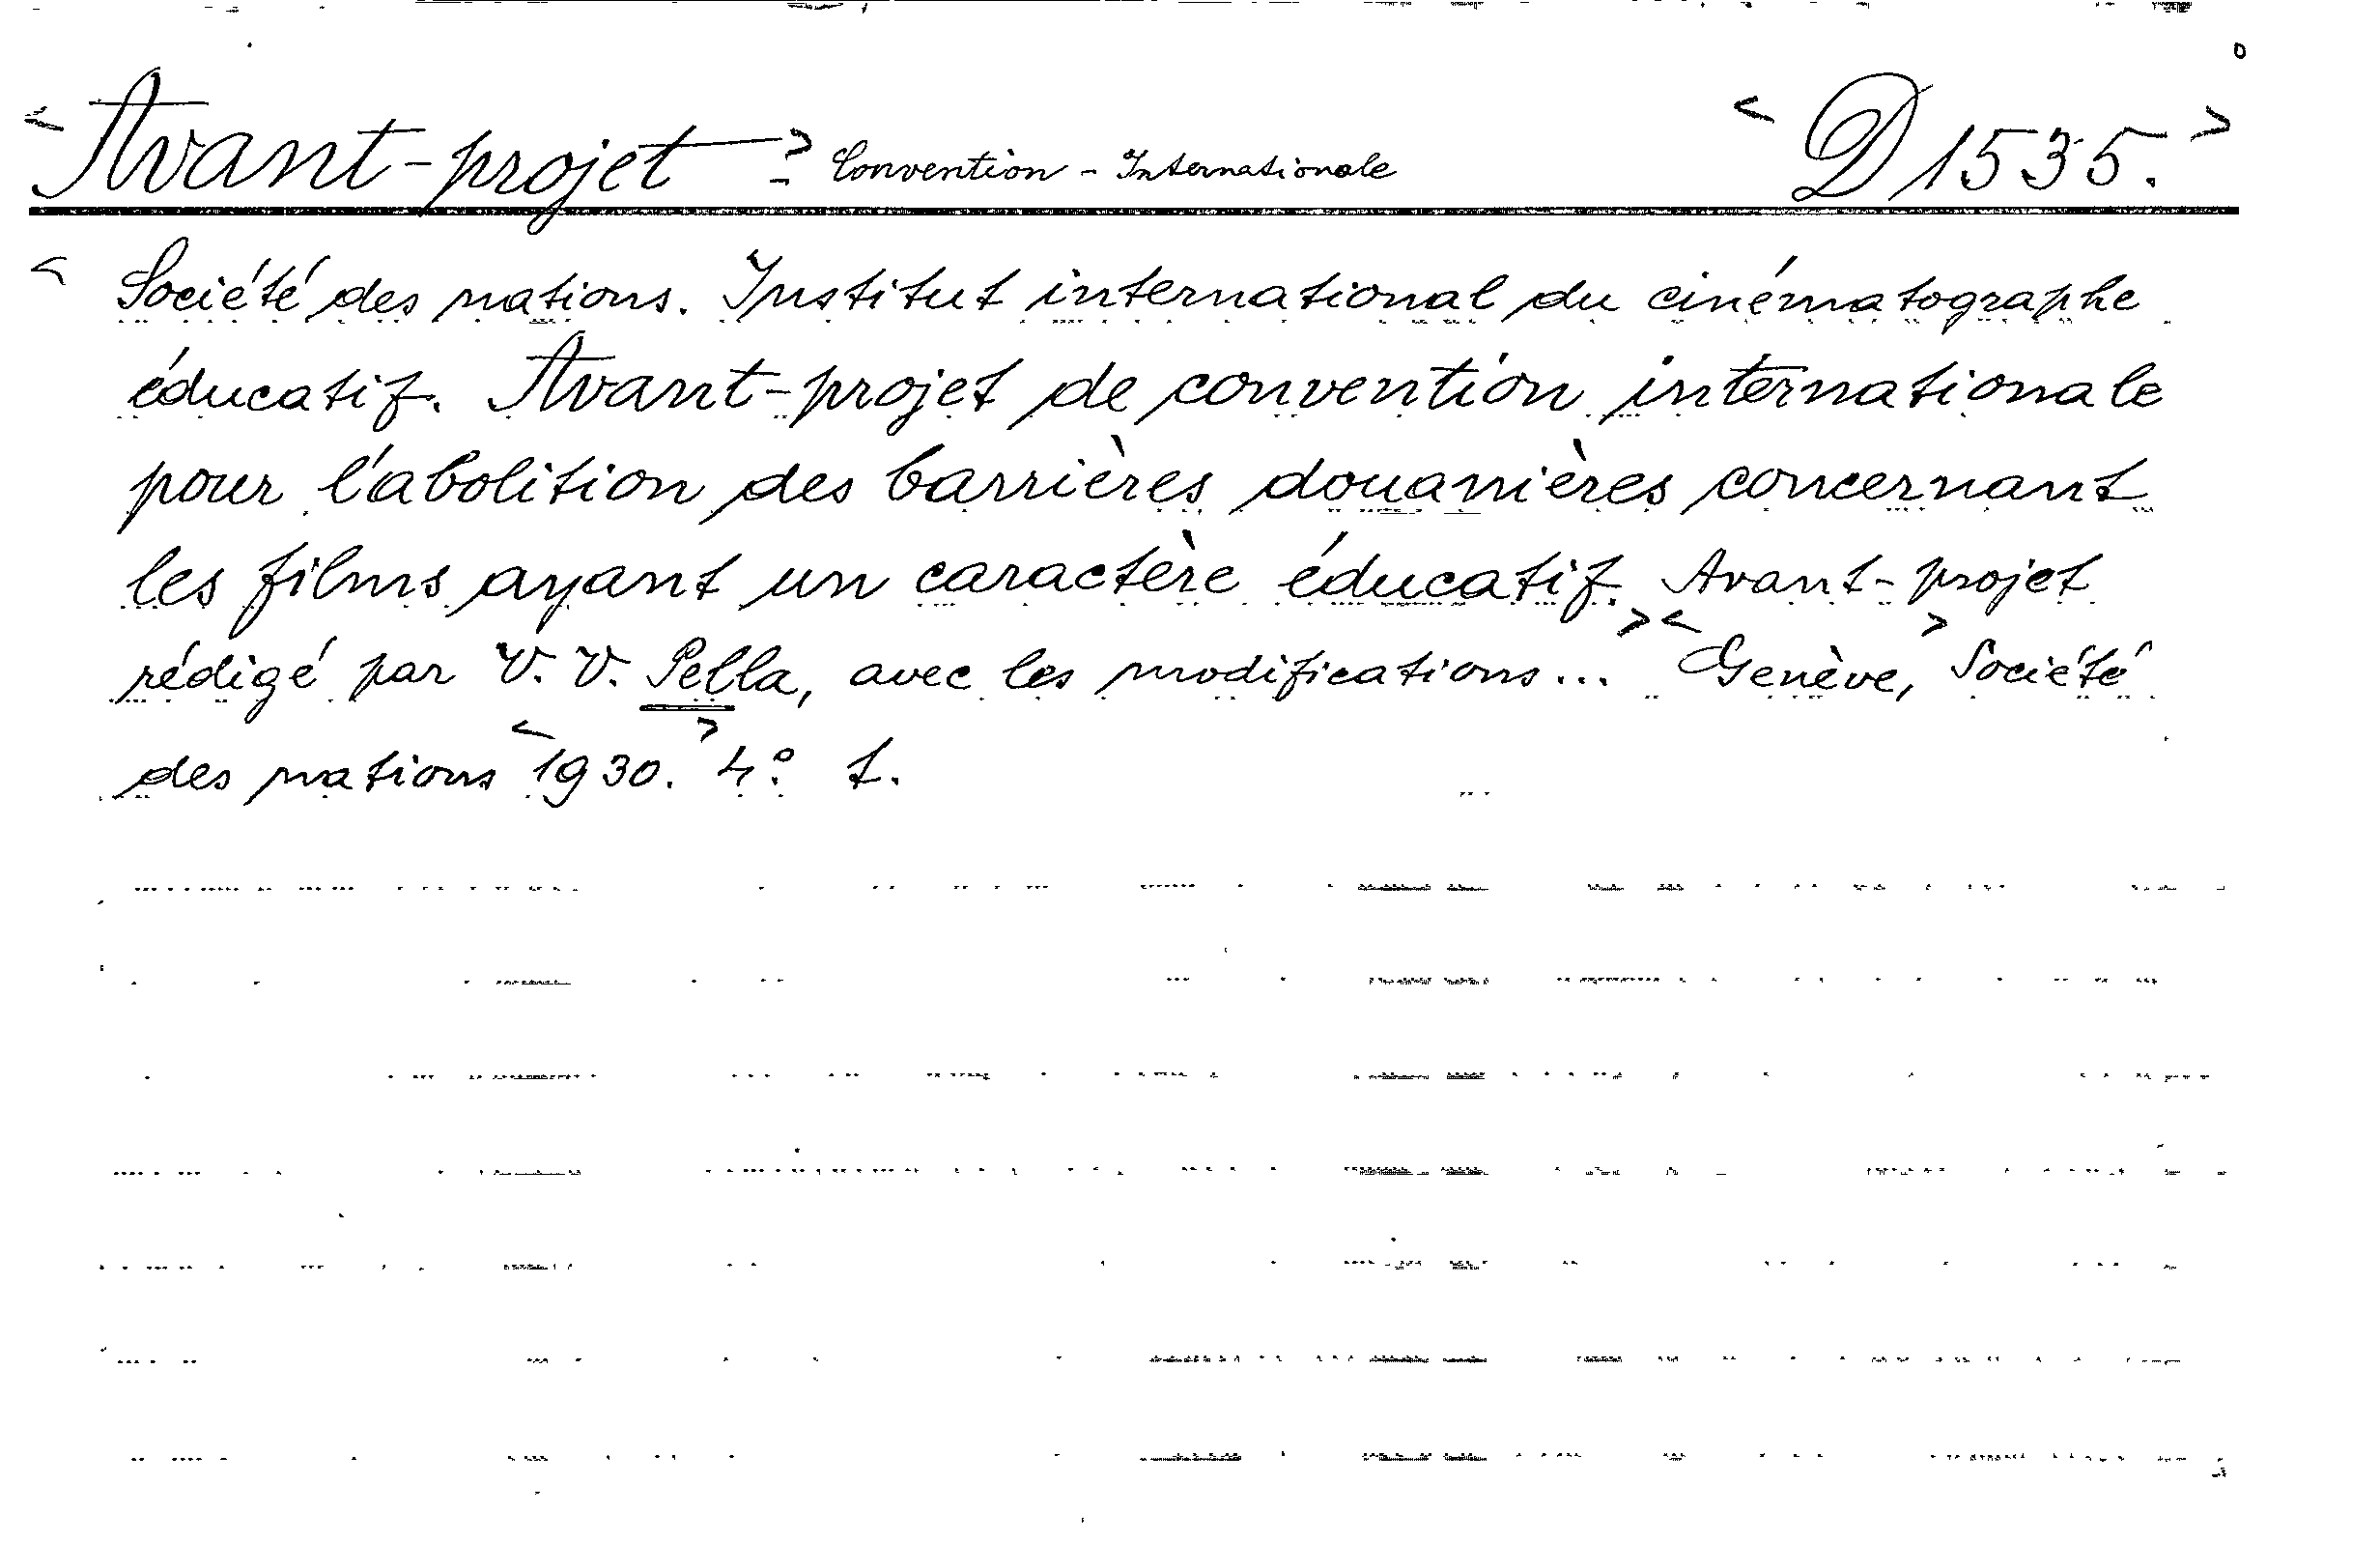 Avant-projet - Convention - Internationale D 1535.
Société des nations. Institut international du cinématographe
éducatif. Avant-projet de convention internationale
pour l'abolition des barrières douanières concernant
les films ayant un caractère éducatif. Avant-projet
rédigé par V. V. Pella, avec les modifications... Genève, Société
des nations 1930. 4° t.